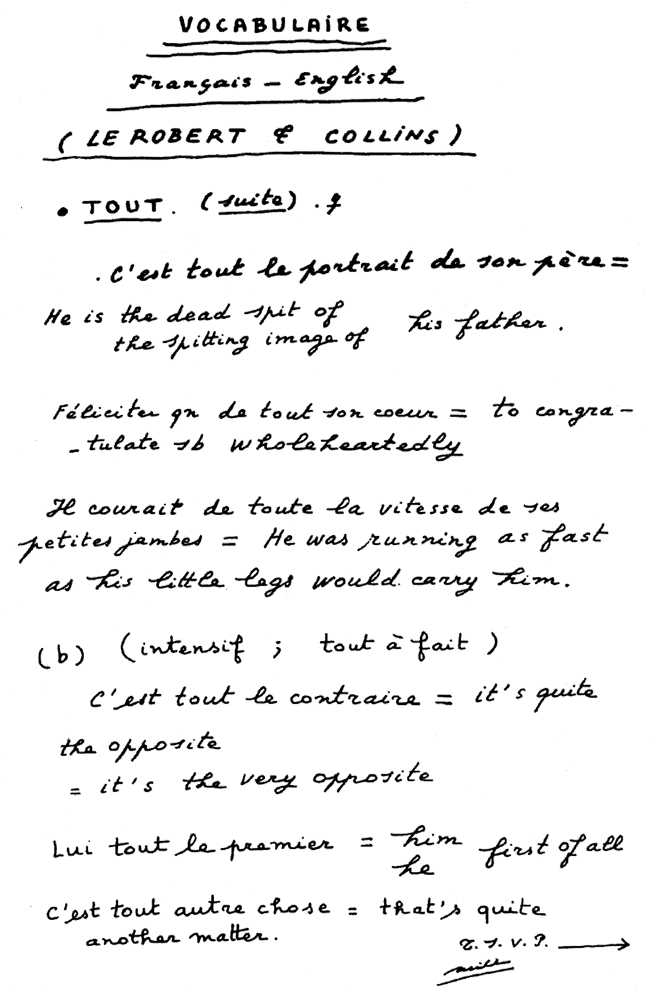 VOCABULAIRE
Français - English
( LE ROBERT & COLLINS )
• TOUT. (suite). q
. C'est tout le portrait de son père =
He is the dead spit of his father.
the spitting image of
Féliciter qn de tout son coeur = to congra-
-tulate sb wholeheartedly
Il courait de toute la vitesse de ses
petites jambes = He was running as fast
as his little legs would carry him.
(b) (intensif ; tout à fait )
C'est tout le contraire = it's quite
the opposite
= it's the very opposite
Lui tout le premier = him first of all
he
C'est tout autre chose = that's quite
another matter.
T. S. V. P. →